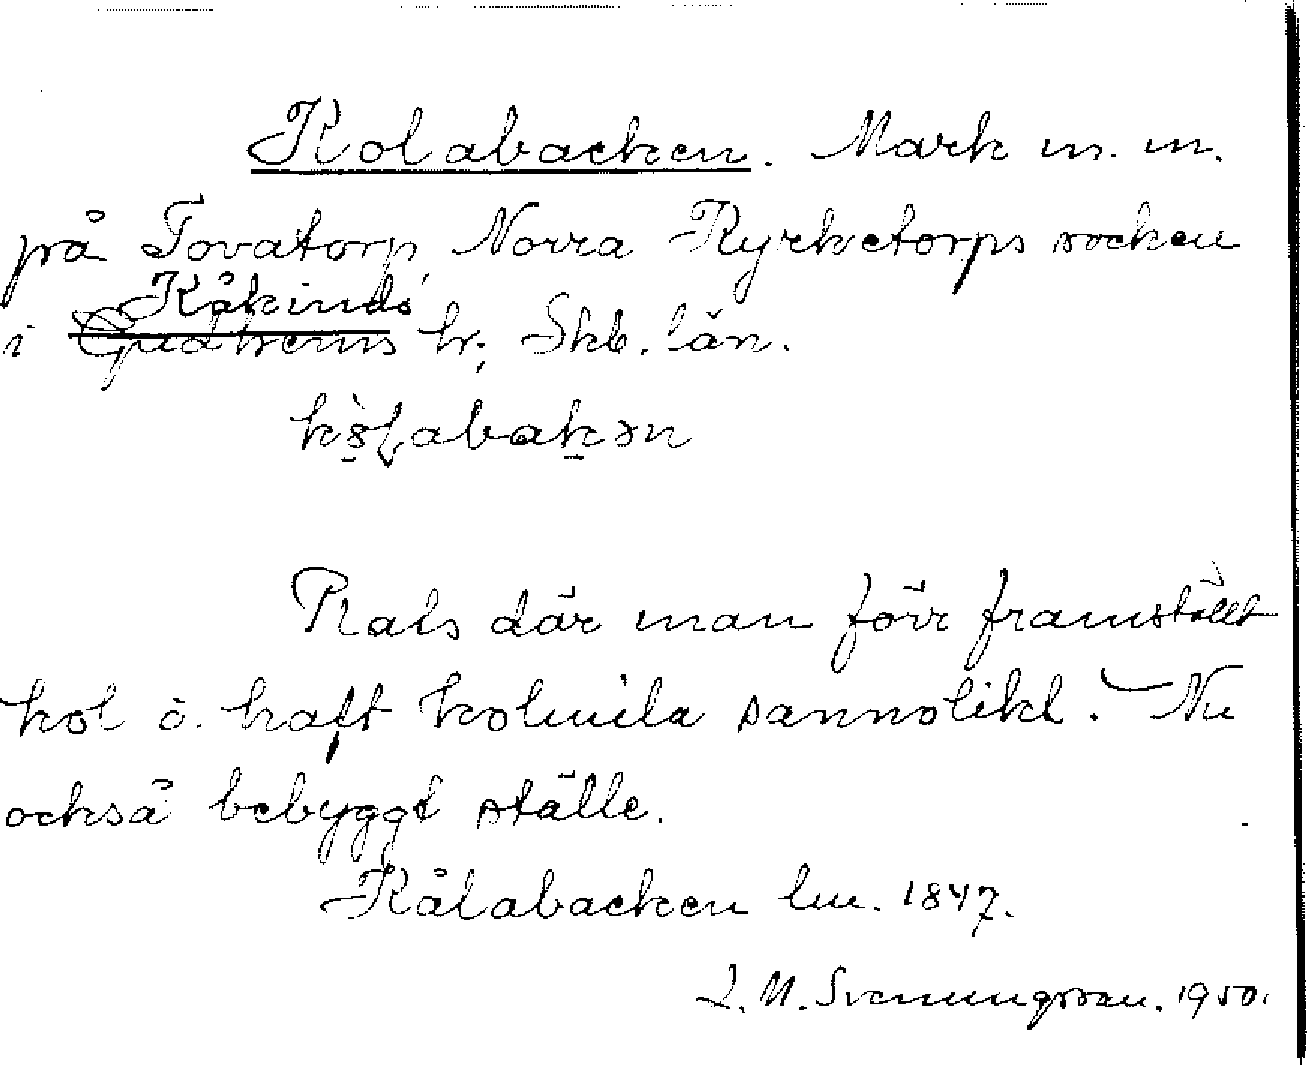 Kolabacken. Mark m. m.
på Tovatorp, Norra Kyrketorps socken
Kåkinds
i Gudhems hr; Skb. län.
Plats där man förr framställt
kol o. haft kolmila sannolikt. Nu
också bebyggt ställe.
Kålabacken lm. 1847.
L. M. Svenungsson. 1950.